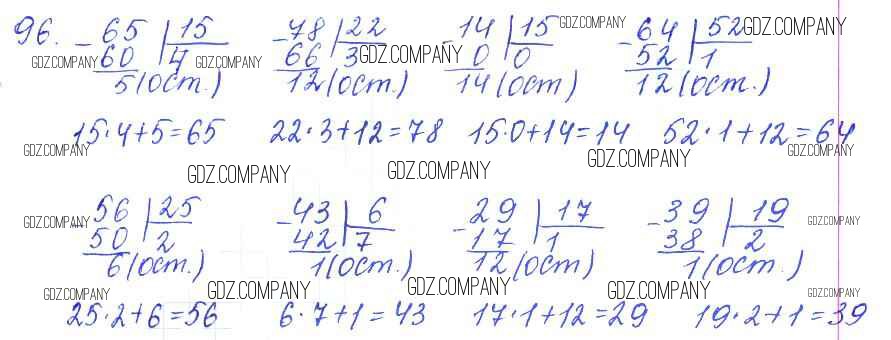 96. - 65 | 15   - 78 | 22   - 14 | 15 GDZ.COMPANY   - 64 | 52 GDZ.COMPANY
GDZ.COMPANY 60 | 4 GDZ.COMPANY   66 | 3 GDZ.COMPANY   0 | 0   52 | 1
5 (ост.)   12 (ост.)   14 (ост)   12 (ост.)
15·4+5=65   22·3+12=78   15·0+14=14   52·1+12=64
GDZ.COMPANY   GDZ.COMPANY   GDZ.COMPANY   GDZ.COMPANY   GDZ.COMPANY
- 56 | 25   - 43 | 6   - 29 | 17   - 39 | 19
GDZ.COMPANY   GDZ.COMPANY   GDZ.COMPANY   GDZ.COMPANY
50 | 2   42 | 7   17 | 1   38 | 2
6 (ост.)   1 (ост.)   12 (ост.)   1 (ост.)
GDZ.COMPANY   GDZ.COMPANY   GDZ.COMPANY   GDZ.COMPANY   GDZ.COMPANY
25·2+6=56   6·7+1=43   17·1+12=29   19·2+1=39